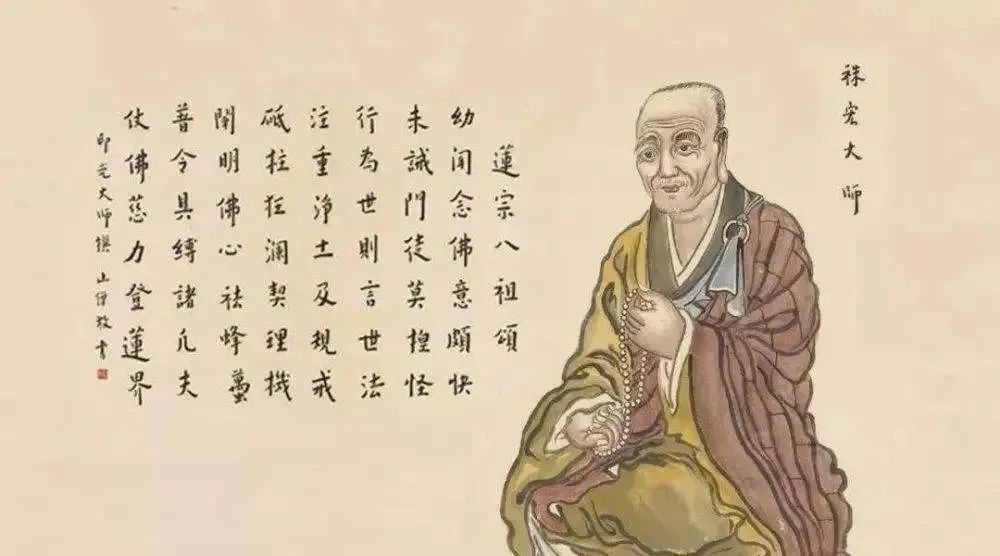 袾宏大師
蓮宗八祖頌
幼聞念佛意頗快
未誡門徒莫惶怪
行為世則言世法
注重淨土及規戒
砥柱狂瀾契理機
闡明佛心祛蜂蠆
普令具縛諸凡夫
仗佛慈力登蓮界
印光大師撰 山僧敬書